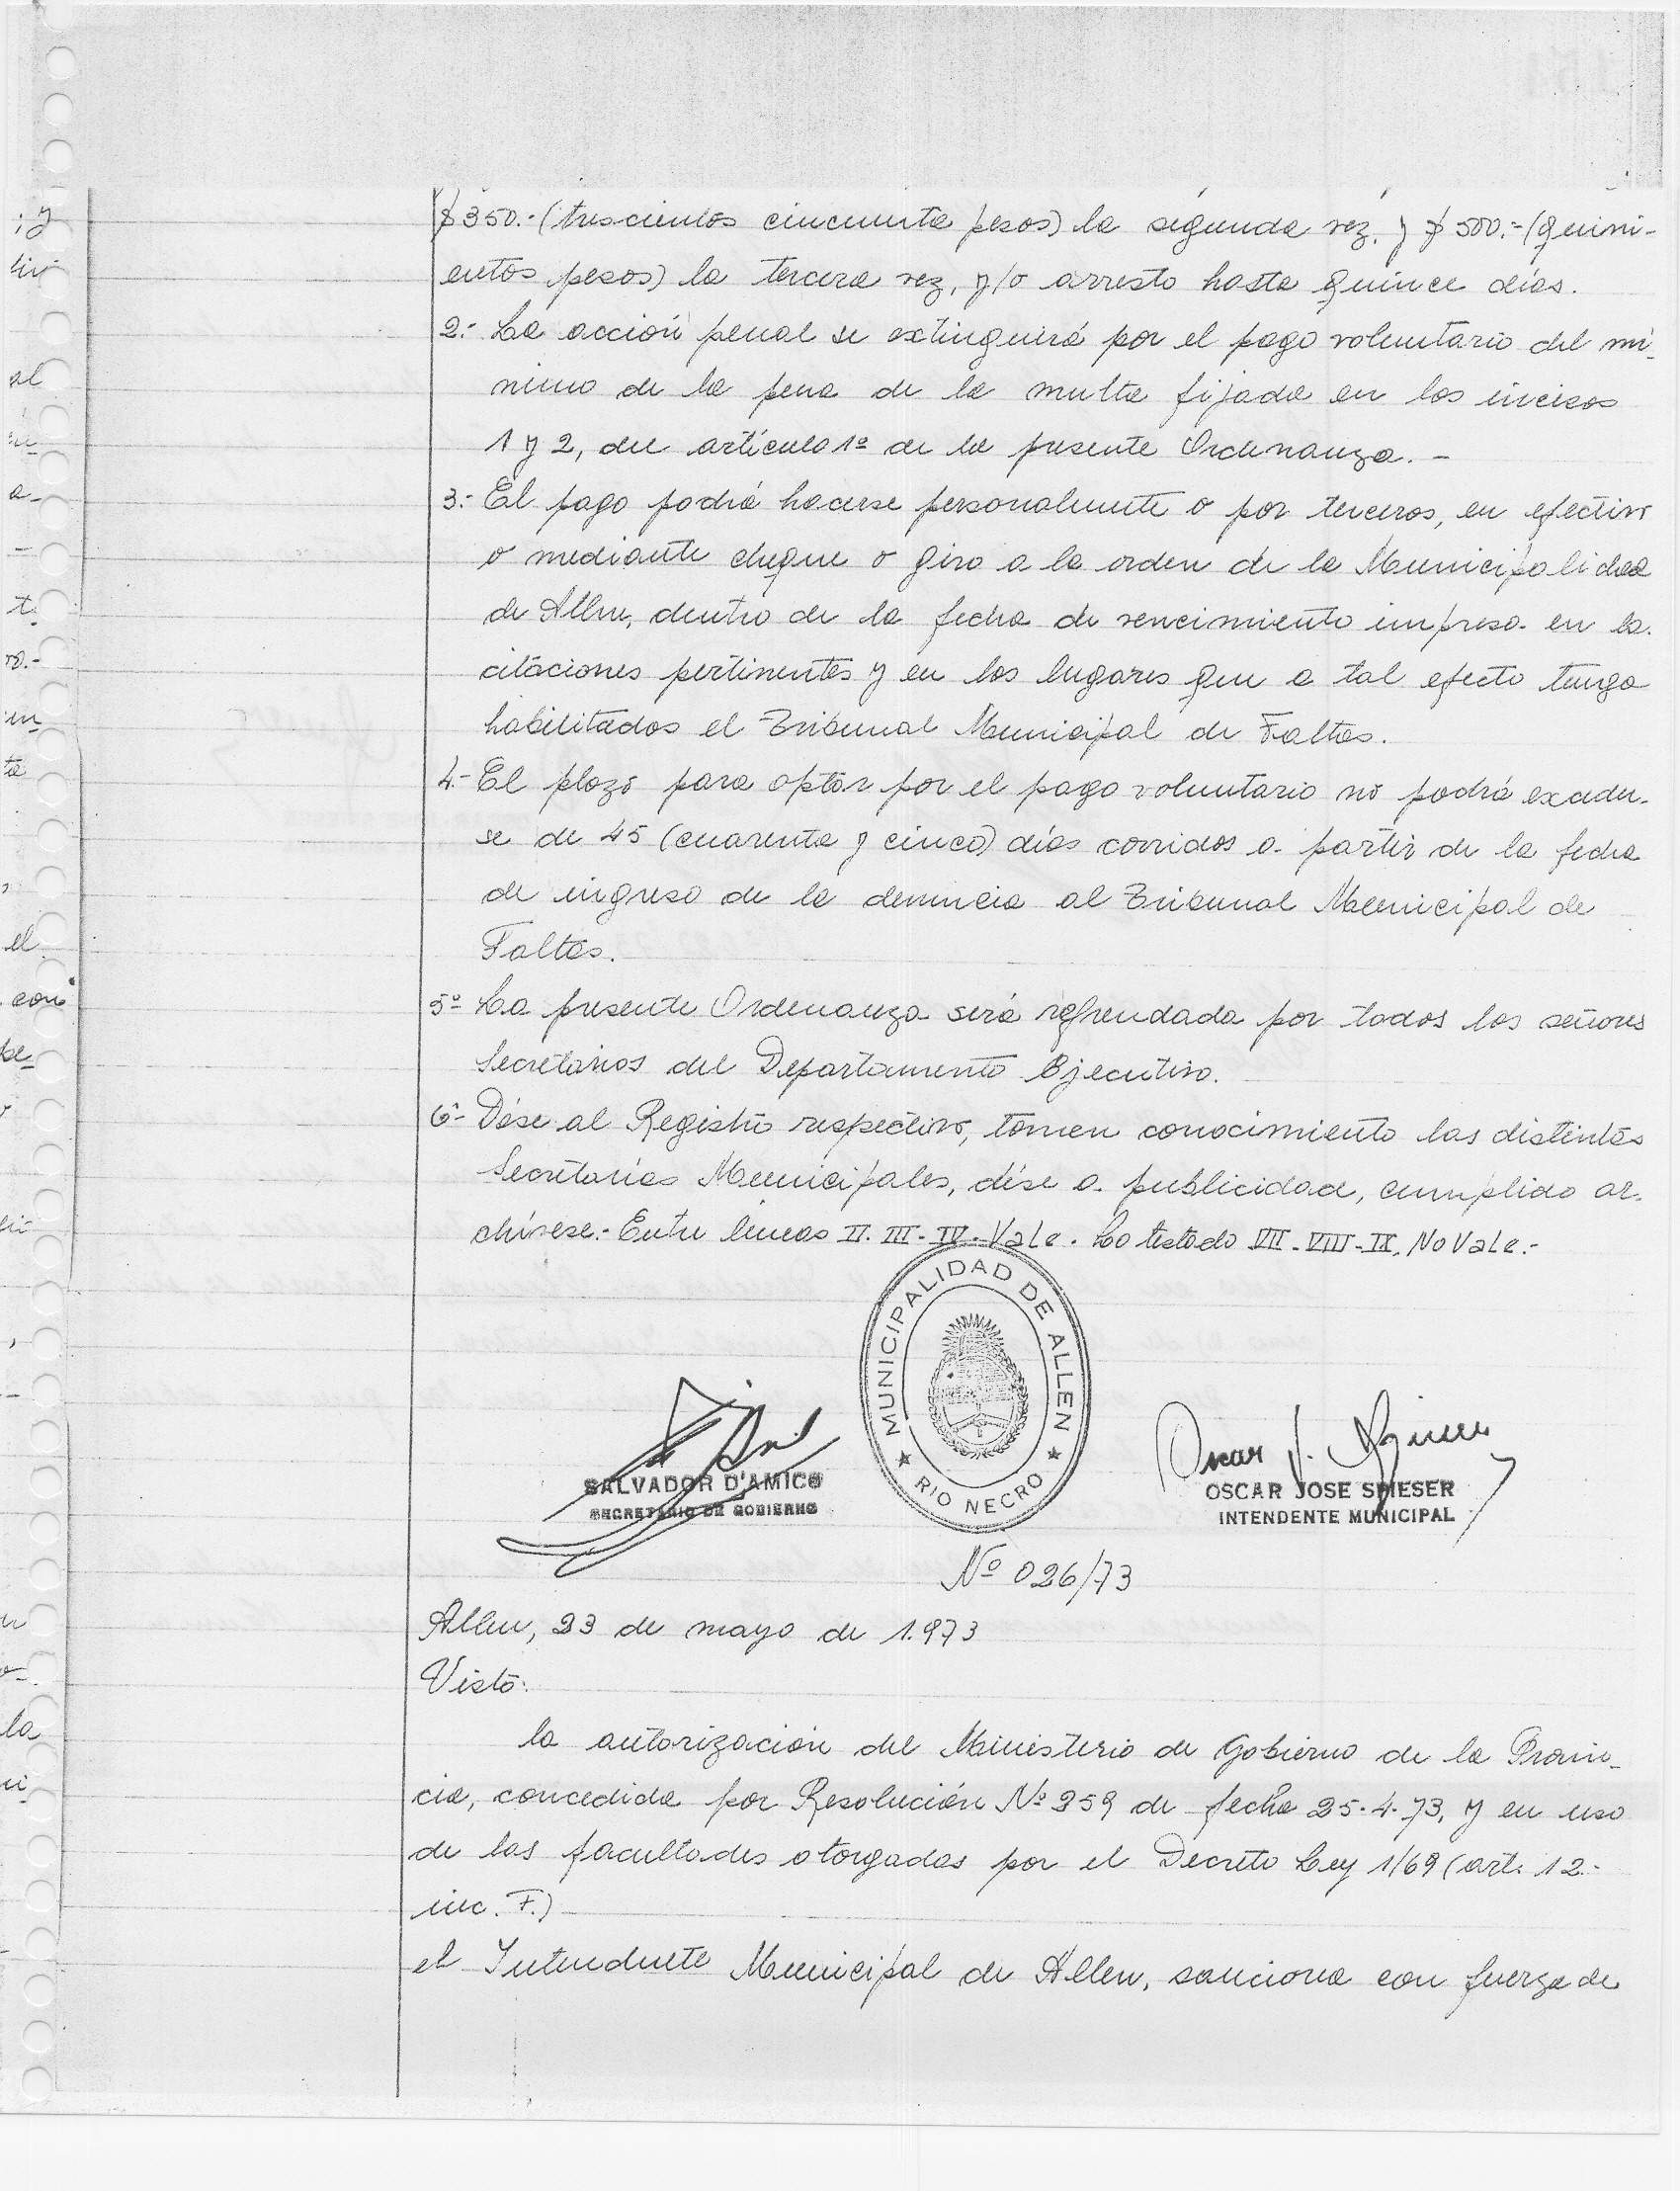 $350.-(trescientos cincuenta pesos) la segunda vez. y $500.-(quini-
entos pesos) la tercera vez, y/o arresto hasta quince días.
2.- La acción penal se extinguirá por el pago voluntario del mí-
nimo de la pena de la multa fijada en los incisos
1 y 2, del artículo 1º de la presente Ordenanza. -
3.- El pago podrá hacerse personalmente o por terceros, en efectivo
o mediante cheque o giro a la orden de la Municipalidad
de Allen, dentro de la fecha de vencimiento impresa en las
citaciones pertinentes y en los lugares que a tal efecto tenga
habilitados el Tribunal Municipal de Faltas.
4.- El plazo para optar por el pago voluntario no podrá exceder-
se de 45 (cuarenta y cinco) días corridos a partir de la fecha
de ingreso de la denuncia al Tribunal Municipal de
Faltas.
5º La presente Ordenanza será refrendada por todos los señores
Secretarios del Departamento Ejecutivo.
6º- Dése al Registro respectivo, tomen conocimiento las distintas
Secretarías Municipales, dése a publicidad, cumplido ar-
chívese.- Entre líneas II. III - IV. Vale. Lo testado VII - VIII - IX, No Vale.-
MUNICIPALIDAD DE ALLEN
★ RIO NECRO ★
SALVADOR D'AMICO
SECRETARIO DE GOBIERNO
Oscar J. Spieser
OSCAR JOSE SPIESER
INTENDENTE MUNICIPAL
Nº 026/73
Allen, 23 de mayo de 1.973
Visto:
la autorización del Ministerio de Gobierno de la Provin-
cia, concedida por Resolución Nº 259 de fecha 25.4.73, y en uso
de las facultades otorgadas por el Decreto Ley 1/69 (art. 12.-
inc. F.)
el Intendente Municipal de Allen, sanciona con fuerza de